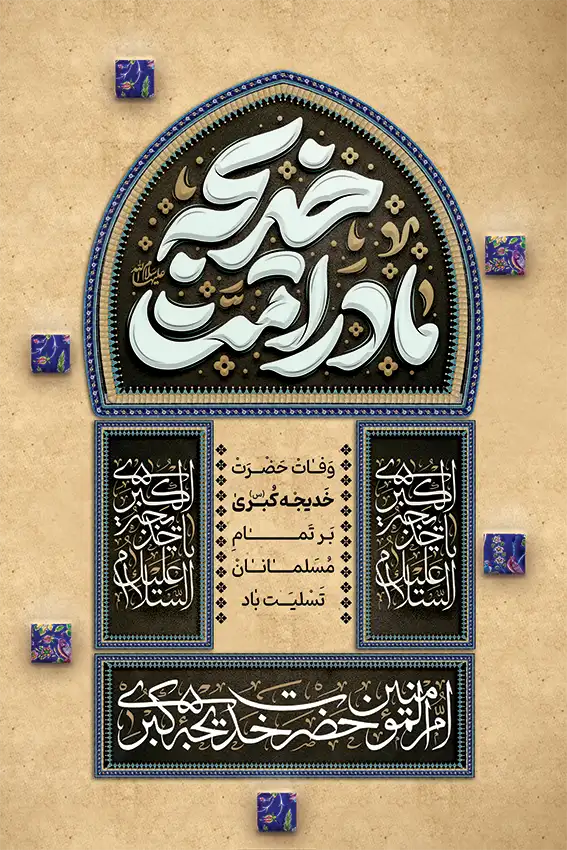 خدیجه
مادر امّت
سلام الله علیها
السلام علیک یا خدیجة الکبری
وَفـاتْ حَضـرَتْ
خَدیجـه کُبـریٰ (س)
بَـر تَمـامِ
مُسَلمـانـانْ
تَسْلیَـت بـاد
السلام علیک یا خدیجة الکبری
امّ المؤمنین حضرت خدیجه کبری